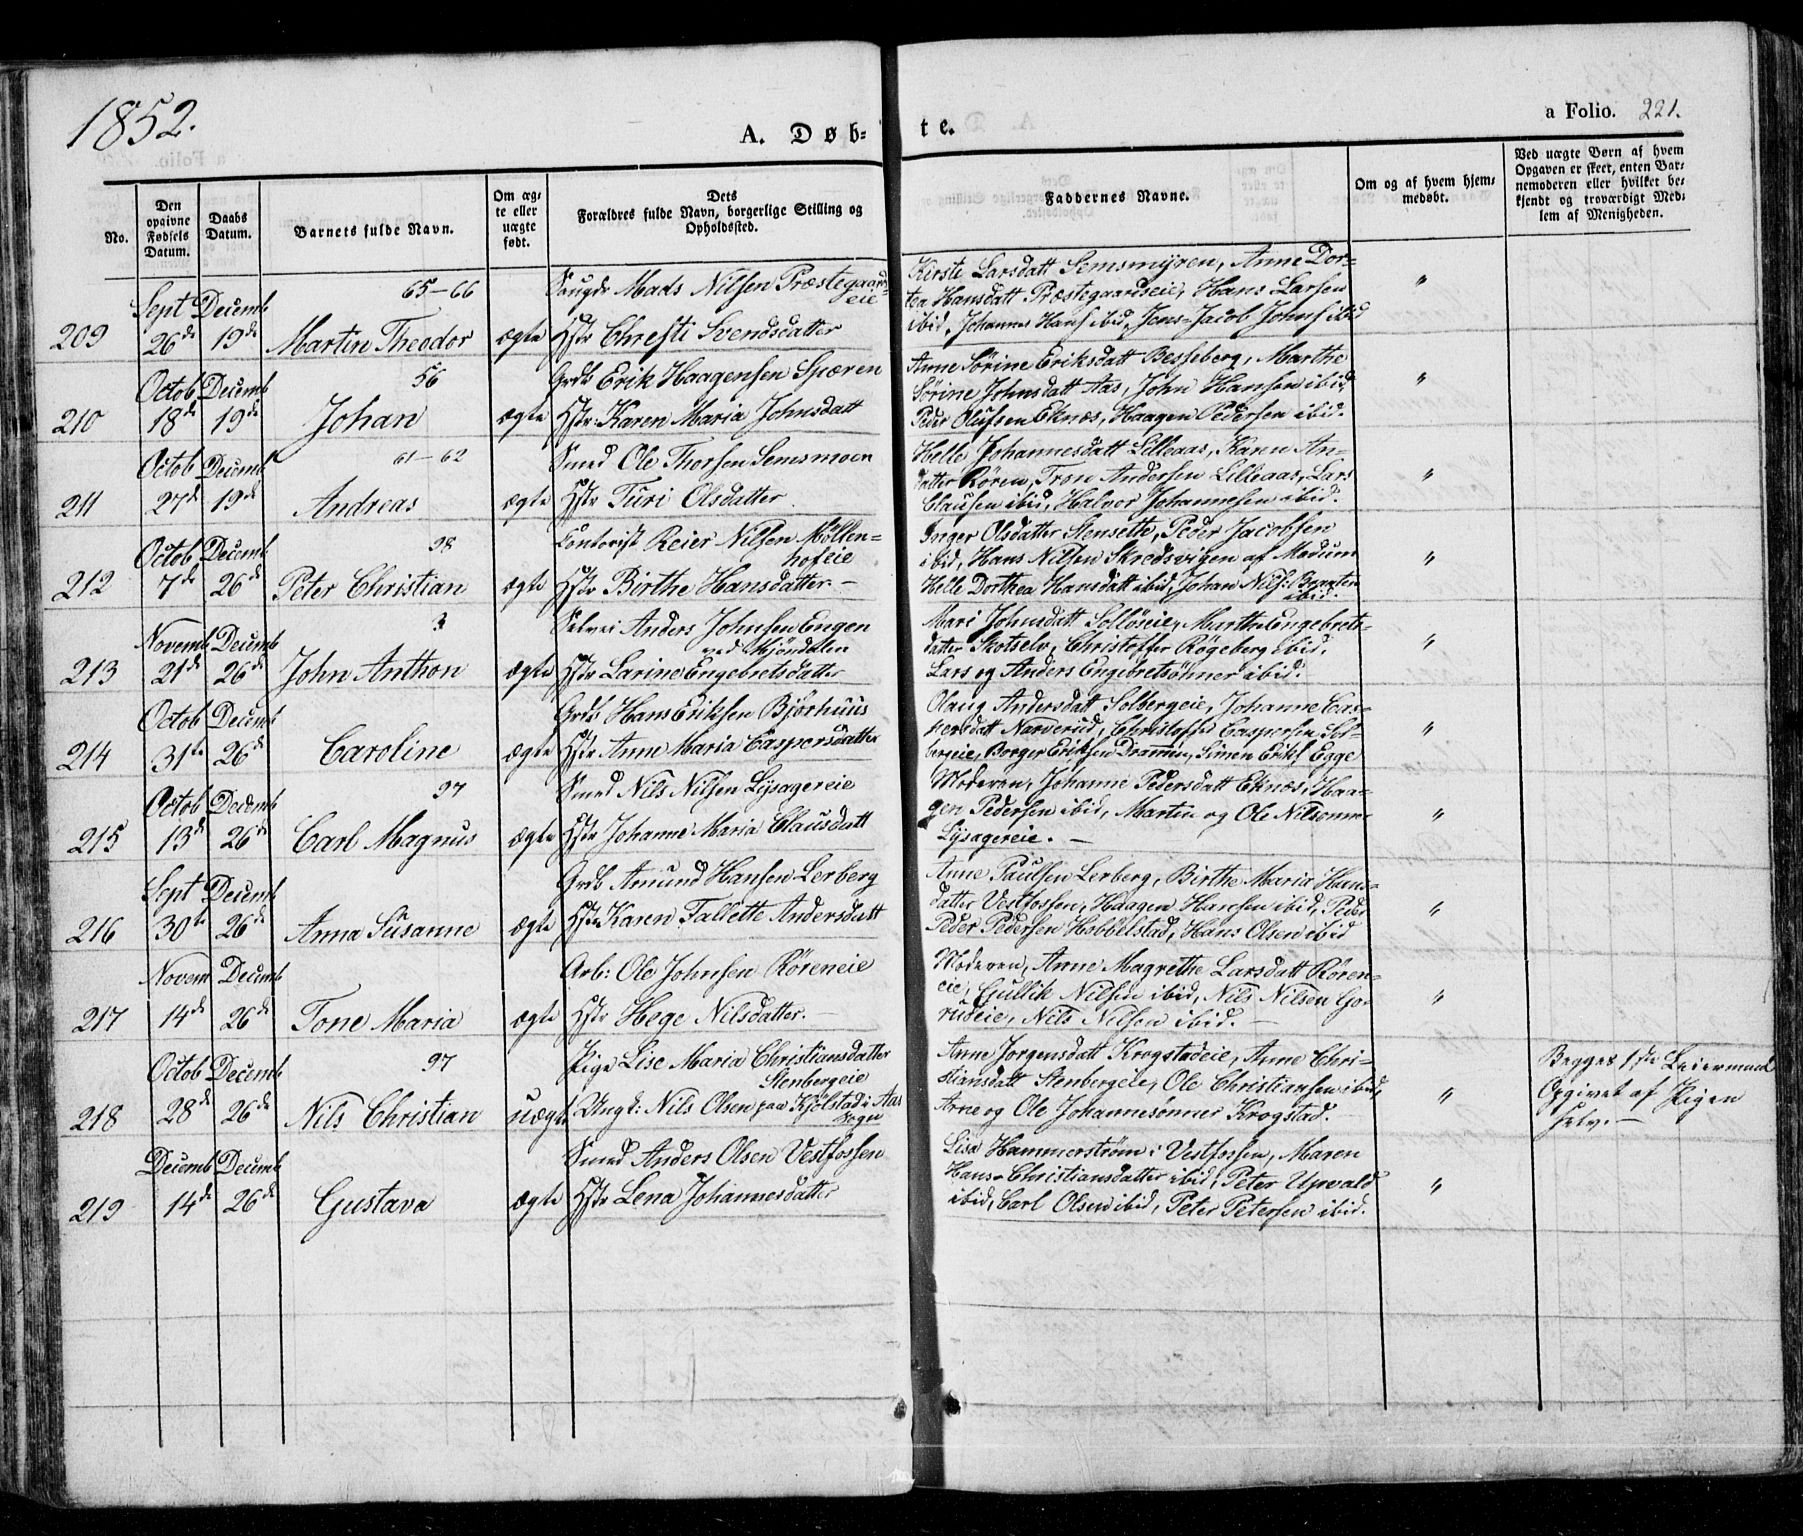 1852.
A. Døb-
te.
a Folio. 221.
No.
Den opgivne Fødsels Datum.
Daabs Datum.
Barnets fulde Navn.
Om ægte eller uægte født.
Dets Forældres fulde Navn, borgerlige Stilling og Opholdssted.
Faddernes Navne.
Om og af hvem hjemmedøbt.
Ved uægte Børn af hvem Opgaven er skeet, enten Barnemoderen eller hvilket bekjendt og troværdigt Medlem af Menigheden.
65-66
Sept Decemb
209 26de 19de Martin Theodor ægte
Mads Nilsen Præstegaards-
eie
Hstr Chresti Svendsdatter
Kirste Larsdatt Semsmyren, Anne Dor-
tea Hansdatt Præstegaardseie, Hans Larsen
ibid, Johannes Hans ibid, Jens Jacob Johns ibid
"
56
Octob Decemb
210 18de 19de Johan ægte
Grdb Erik Haagensen Spæren
Hstr: Karen Maria Johnsdatt
Anne Sörine Eriksdatt Besseberg, Marthe
Sörine Johnsdatt Aas, John Hansen ibid,
Peder Olufsen Eknæs, Haagen Pedersen ibid.
"
61-62
Octob Decemb
211 27de 19de Andreas ægte
Smed Ole Thorsen Semsmoen
Hstr Turi Olsdatter
Helle Johannesdatt Lilleaas, Karen An-
datter Røren, Tron Andersen Lilleaas, Lars
Clausen ibid, Halvor Johannesen ibid.
"
98
Octob Decemb
212 7de 26de Peter Christian ægte
Contorist Reier Nilsen Møllen-
hofeie
Hstr Birthe Hansdatter. -
Inger Olsdatter Stensette, Peder Jacobsen
ibid, Hans Nilsen Skredsvigen af Modum
Helle Dorthea Hansdatt ibid, Johan Nils: Braaten
ibid.
"
3
Novemb Decemb
213 21de 26de John Anthon ægte
Selvei Anders Johnsen Engen
ved Mjøndalen
Hstr Larine Engebretsdatter
Mari Johnsdatt Solløseie, Marth Engebrets-
datter Skotselv, Christoffer Røgeberg ibid,
Lars og Anders Engebretsønner ibid.
"
Octob Decemb
214 31te 26de Caroline ægte
Grdb Hans Eriksen Bjørhuus
Hstr Anne Maria Caspersdatter
Olaug Andersdatt Solbergeie, Johanne Cas-
persdatt Narverud, Christoffer Caspersen Sol-
bergeie, Borger Eriksen Drammen, Simen Eriks Egge
"
97
Octob Decemb
215 13de 26de Carl Magnus ægte
Smed Nils Nilsen Lysagereie
Hstr Johanne Maria Clausdatt
Moderen, Johanne Pedersdatt Eknæs, Haa-
gen Pedersen ibid, Martin og Ole Nilsønner
Lysagereie. -
"
Sept Decemb
216 30te 26de Anna Susanne ægte
Grdb Amund Hansen Lerberg
Hstr Karen Tallette Andersdatt
Anne Paulsen Lerberg, Birthe Maria Hans-
datter Vestfossen, Haagen Hansen ibid, Peder
Peder Pedersen Hobbelstad, Hans Olsen ibid
"
Novem Decemb
217 14de 26de Tone Maria ægte
Arb: Ole Johnsen Røreneie
Hstr Hege Nilsdatter. -
Moderen, Anne Magrethe Larsdatt Røren-
eie, Gullik Nilsen ibid, Nils Nilsen Go-
rudeie, Nils Nilsen ibid. -
"
97
Octob Decemb
218 28de 26de Nils Christian uægte
Pige Lise Maria Christiansdatter
Stenbergeie
Ungk: Nils Olsen paa Kjölstad i Aas
Sogn
Anne Jorgensdatt Krogstadeie, Anne Chri-
stiansdatt Stenbergeie, Ole Christiansen ibid,
Arne og Ole Johannesønner Krogstad.
"
Begges 1ste Leiermaal
Opgivet af Pigen
selv. -
Decemb Decemb
219 14de 26de Gustava ægte
Smed Anders Olsen Vestfossen
Hstr Lena Johannesdatter
Lisa Hammerstrøm i Vestfossen, Maren
Hans-Christiansdatter ibid, Peter Upvald
ibid, Carl Olsen ibid, Peter Petersen ibid.
"